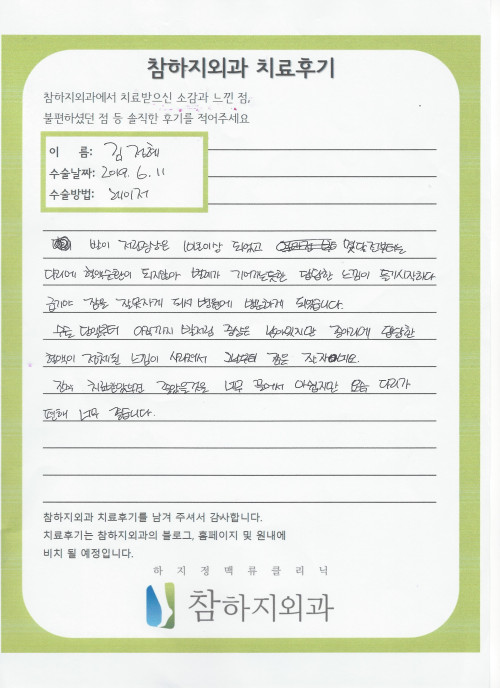 참하지외과 치료후기
참하지외과에서 치료받으신 소감과 느낀 점,
불편하셨던 점 등 솔직한 후기를 적어주세요
이 름: 김정혜
수술날짜: 2019. 6. 11
수술방법: 레이저
발이 저림증상은 10년이상 되었고 몇달전부터는
다리에 혈액순환이 되지않아 벌레가 기어가는듯한 답답한 느낌이 들기시작하다
급기야 잠을 잘못자게 되서 병원에 방문하게 되었습니다.
수술 당일부터 아직까지 발저림 증상은 남아있지만 종아리에 답답한
혈액이 정체된 느낌이 사라져서 그날부터 잠은 잘자네요.
진작 치료받았으면 좋았을것을 너무 끌어서 아쉽지만 요즘 다리가
편해 너무 좋습니다.
참하지외과 치료후기를 남겨 주셔서 감사합니다.
치료후기는 참하지외과의 블로그, 홈페이지 및 원내에
비치 될 예정입니다.
하지정맥류클리닉
참하지외과